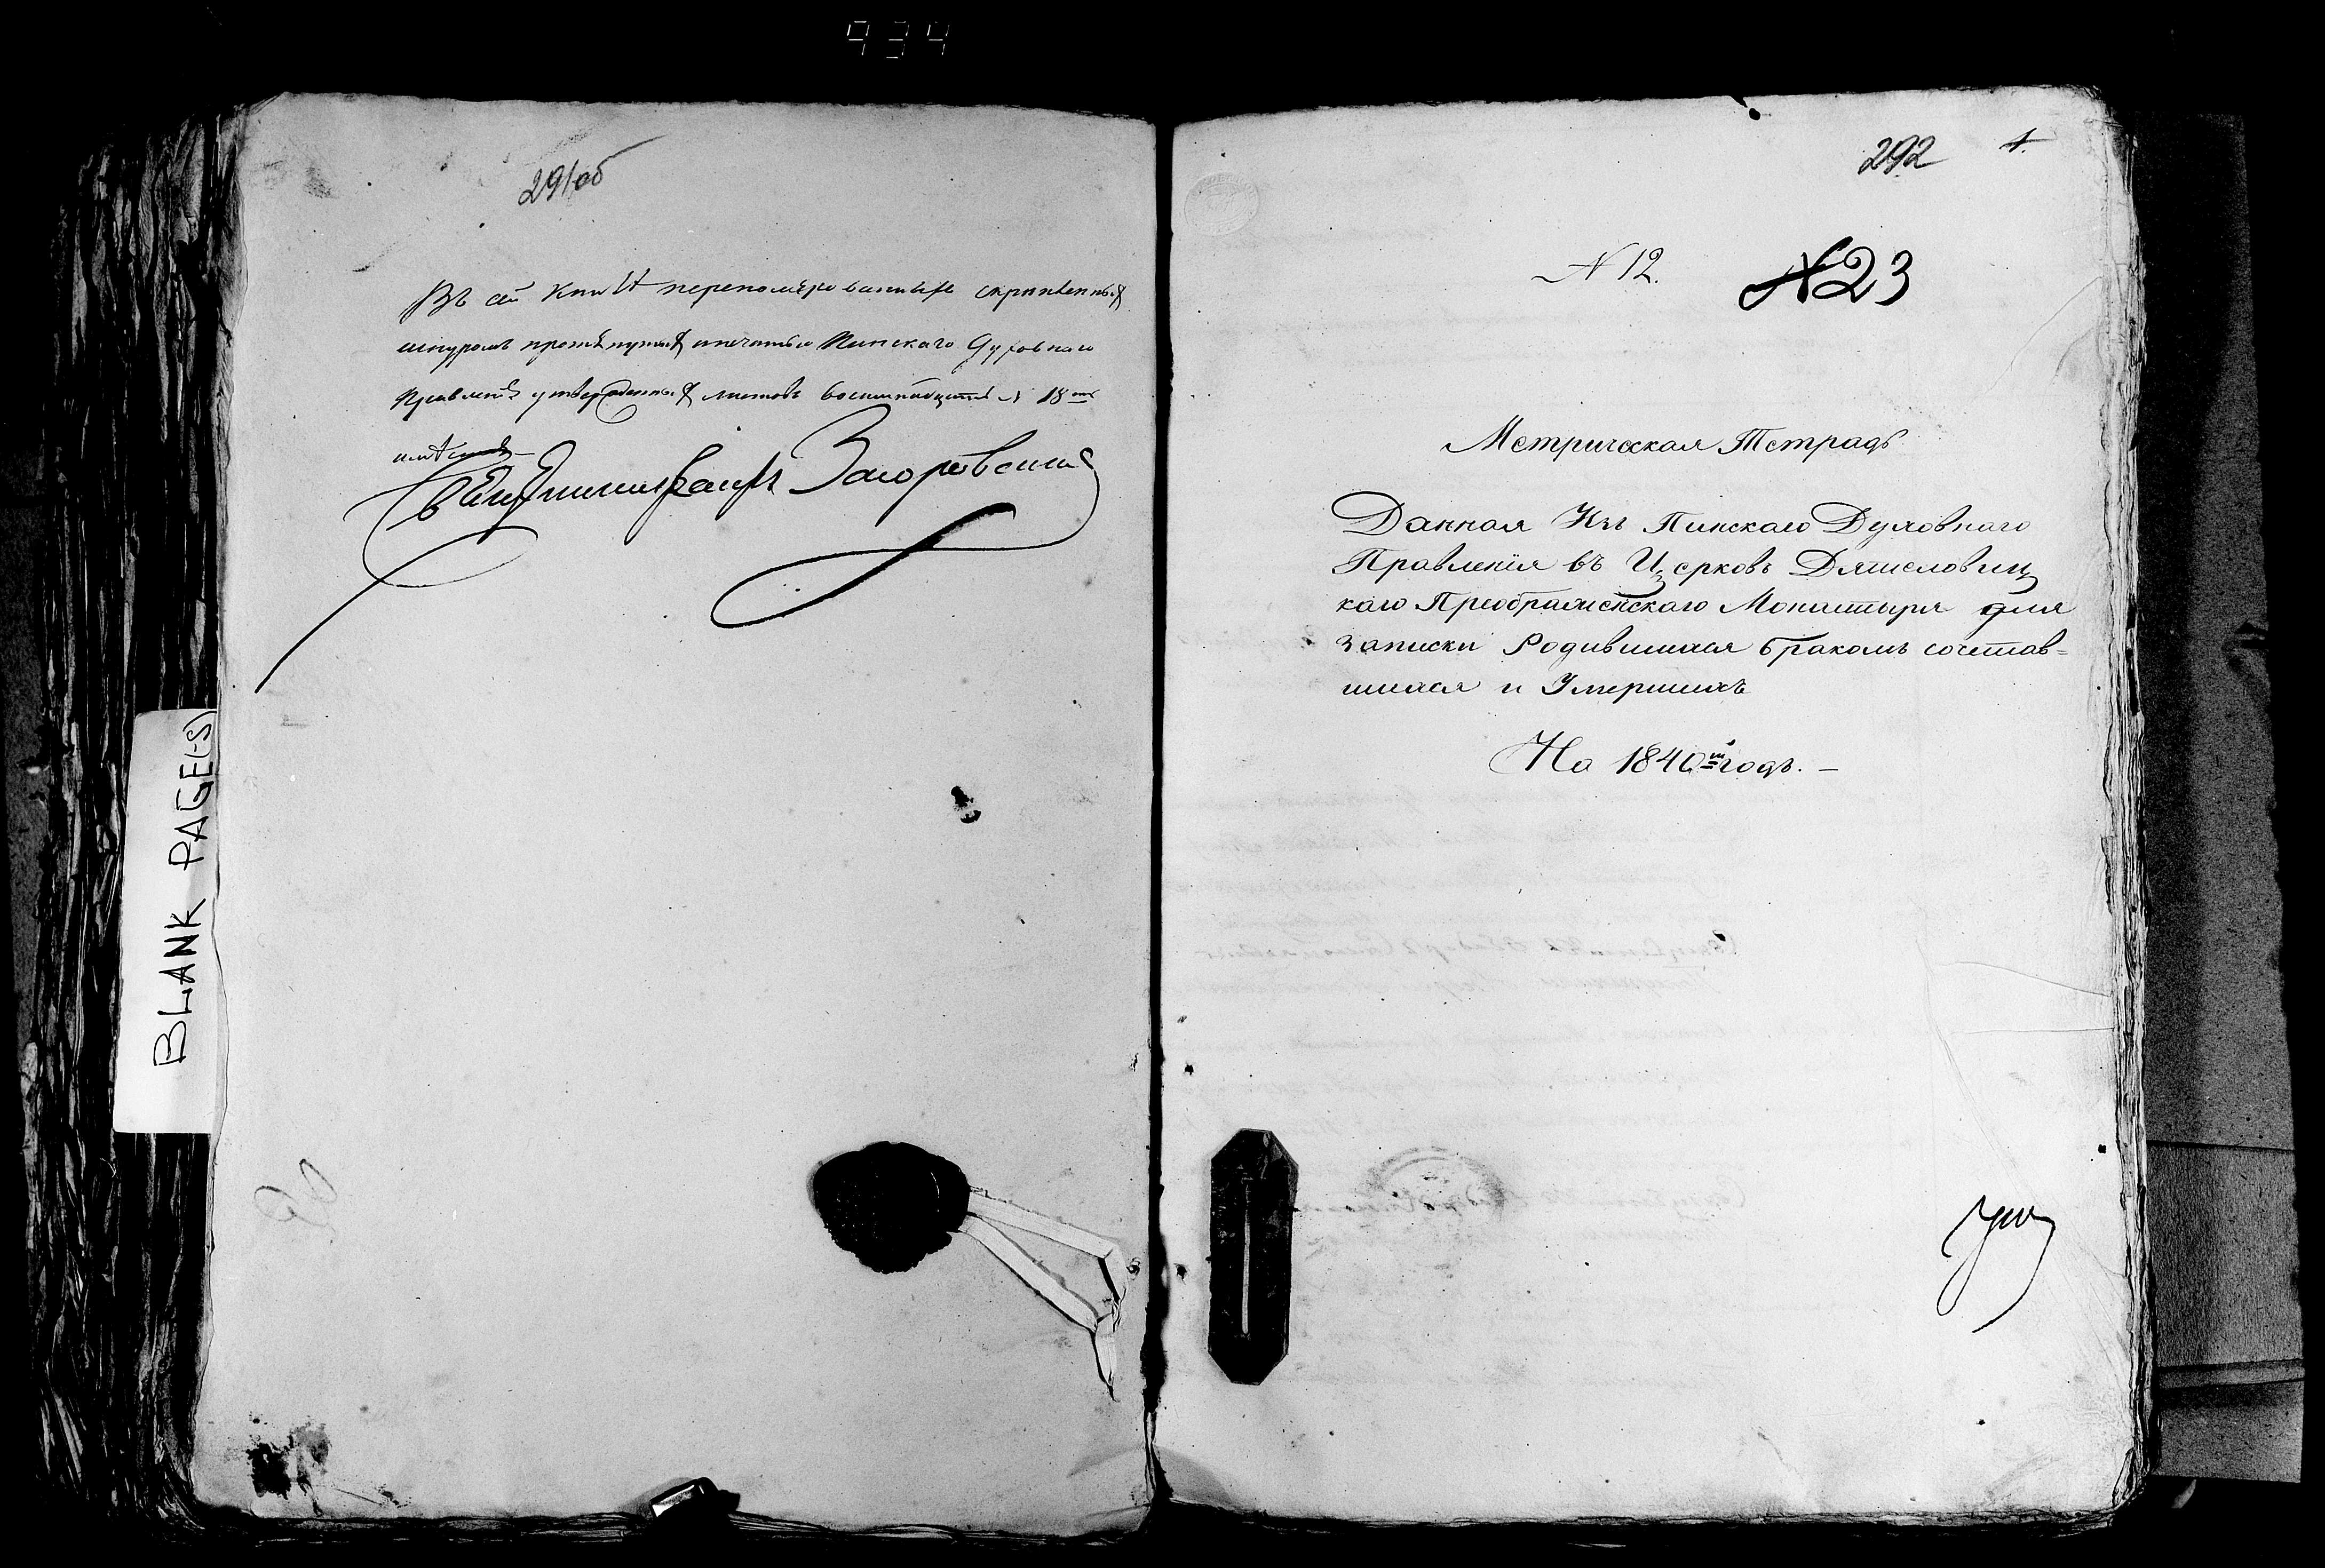 934
291об
Въ сей Книгѣ перенумерованныхъ скрѣпленныхъ
шнуромъ протянутыхъ и печатью Пинскаго Духовнаго
Правленія утвержденныхъ листовъ восемнадцать N 18
Загоровскій
BLANK PAGE(S)
292 1.
N 12. N 23
Метрическая Тетрадь
Данная Изъ Пинскаго Духовнаго
Правленія въ Церковь Дятеловиц
каго Преображенскаго Монастыря для
записки Родившихся бракомъ сочетав=
шихся и Умершихъ
На 1840й годъ. –